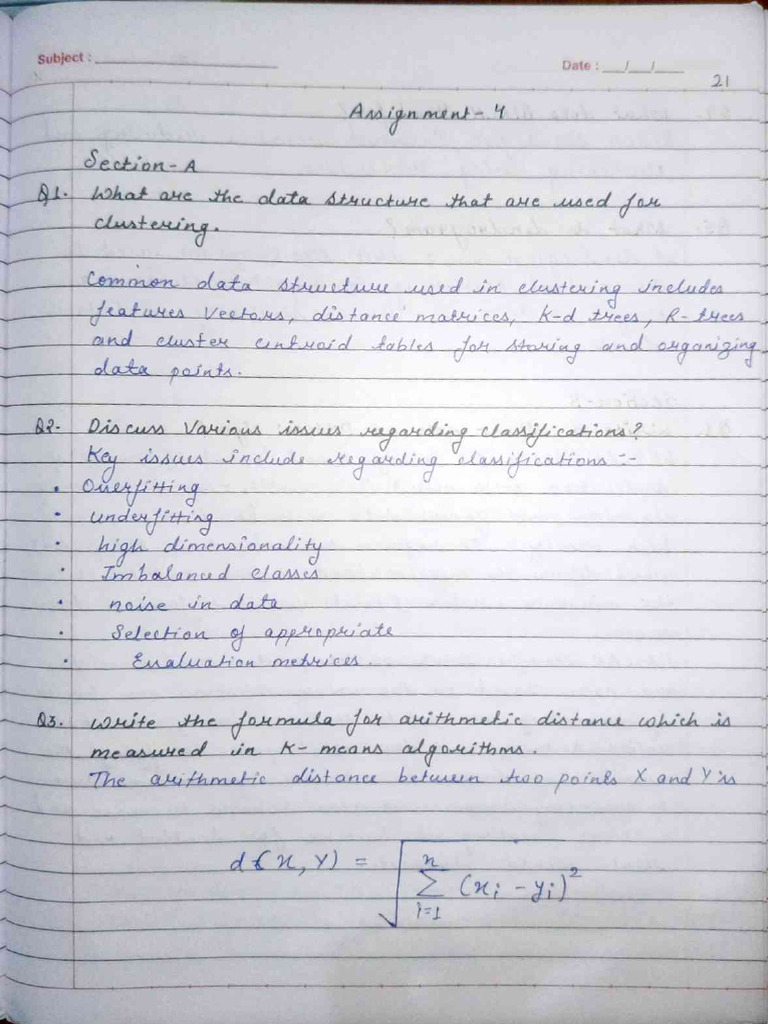 Subject :
Date : __/__/__
21
Assignment - 4
Section - A
Q1. What are the data structure that are used for
clustering.
Common data structure used in clustering includes
features vectors, distance matrices, K-d trees, R-trees
and cluster centroid tables for storing and organizing
data points.
Q2- Discuss Various issues regarding classifications?
Key issues include regarding classifications :-
• Overfitting
• underfitting
• high dimensionality
• Imbalanced classes
• noise in data
• Selection of appropriate
• Evaluation metrices.
Q3. Write the formula for arithmetic distance which is
measured in K-means algorithms.
The arithmetic distance between two points X and Y is
d(x, Y) = √ n Σ i=1 (xi - yi)²